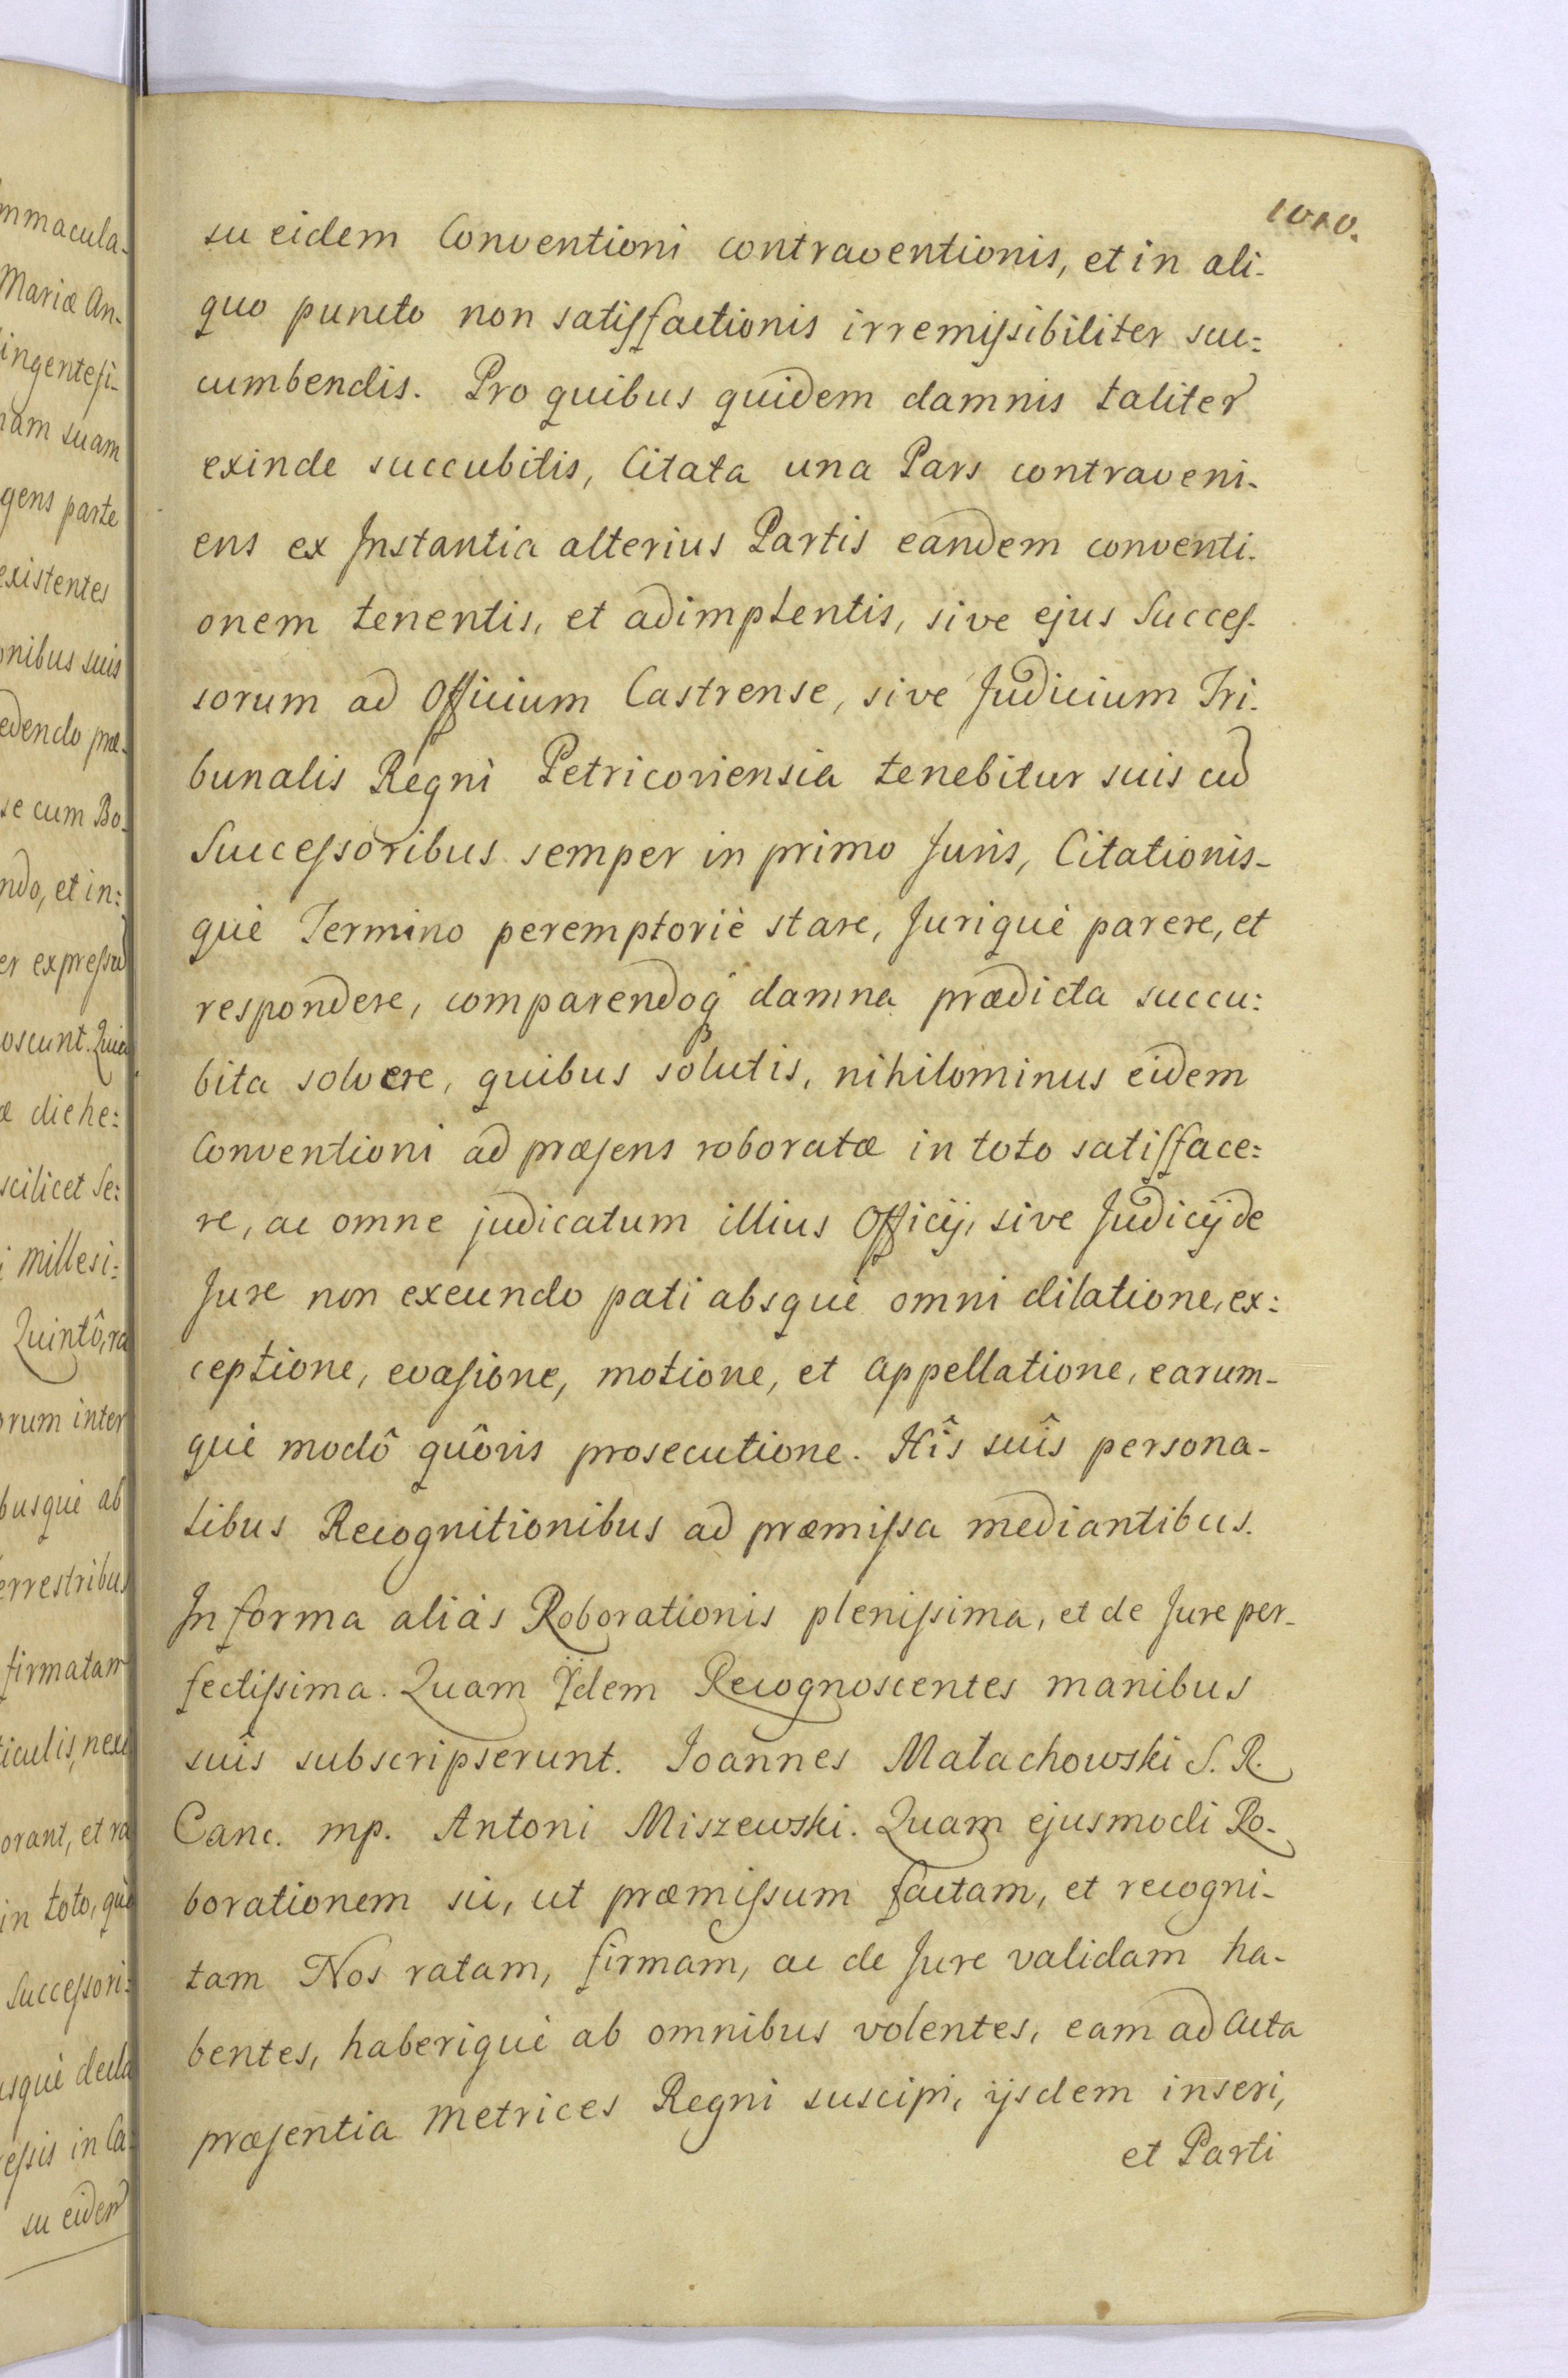 1010.
su eidem Conventioni contraventionis, et in ali-
quo puncto non satisfactionis irremissibiliter suc:
cumbendis. Pro quibus quidem damnis taliter
exinde succubitis, Citata una Pars contraveni-
ens ex Instantia alterius Partis eandem conventi-
onem tenentis, et adimplentis, sive ejus Succes-
sorum ad Officium Castrense, sive Judicium Tri-
bunalis Regni Petricoviensia tenebitur suis cu
Successoribus semper in primo Juris, Citationis-
què Termino peremptoriè stare, Juriquè parere, et
respondere, comparendoq damna prædicta succu:
bita solvere, quibus solutis, nihilominus eidem
Conventioni ad præsens roboratæ in toto satisface:
re, ac omne judicatum illius Officij, sive Judicij de
Jure non exeundo pati absquè omni dilatione, ex:
ceptione, evasione, motione, et appellatione, earum-
què modô quôvis prosecutione. Hîs suîs persona-
libus Recognitionibus ad præmissa mediantibus.
In forma aliàs Roborationis plenissima, et de Jure per-
fectissima. Quam Ijdem Recognoscentes manibus
suis subscripserunt. Joannes Małachowski S. R.
Canc. mp. Antoni Miszewski. Quam ejusmodi Ro-
borationem sic, ut præmissum factam, et recogni-
tam Nos ratam, firmam, ac de Jure validam ha-
bentes, haberiquè ab omnibus volentes, eam ad Acta
præsentia Metrices Regni suscipi, ijsdem inseri,
et Parti
mmacula-
Mariæ An-
ingentesi-
nam suam
gens parte
existentes
onibus suis
edendo præ-
se cum Bo-
ndo, et in:
er expressu
oscunt. Quia
æ die he:
scilicet Se:
i Millesi:
Quintô, ra
orum inter
busquè ab
errestribus
firmatam
ticulis, nexu
orant, et ra
in toto, què
Successori:
usquè decla
essis in Ca:
su eidem